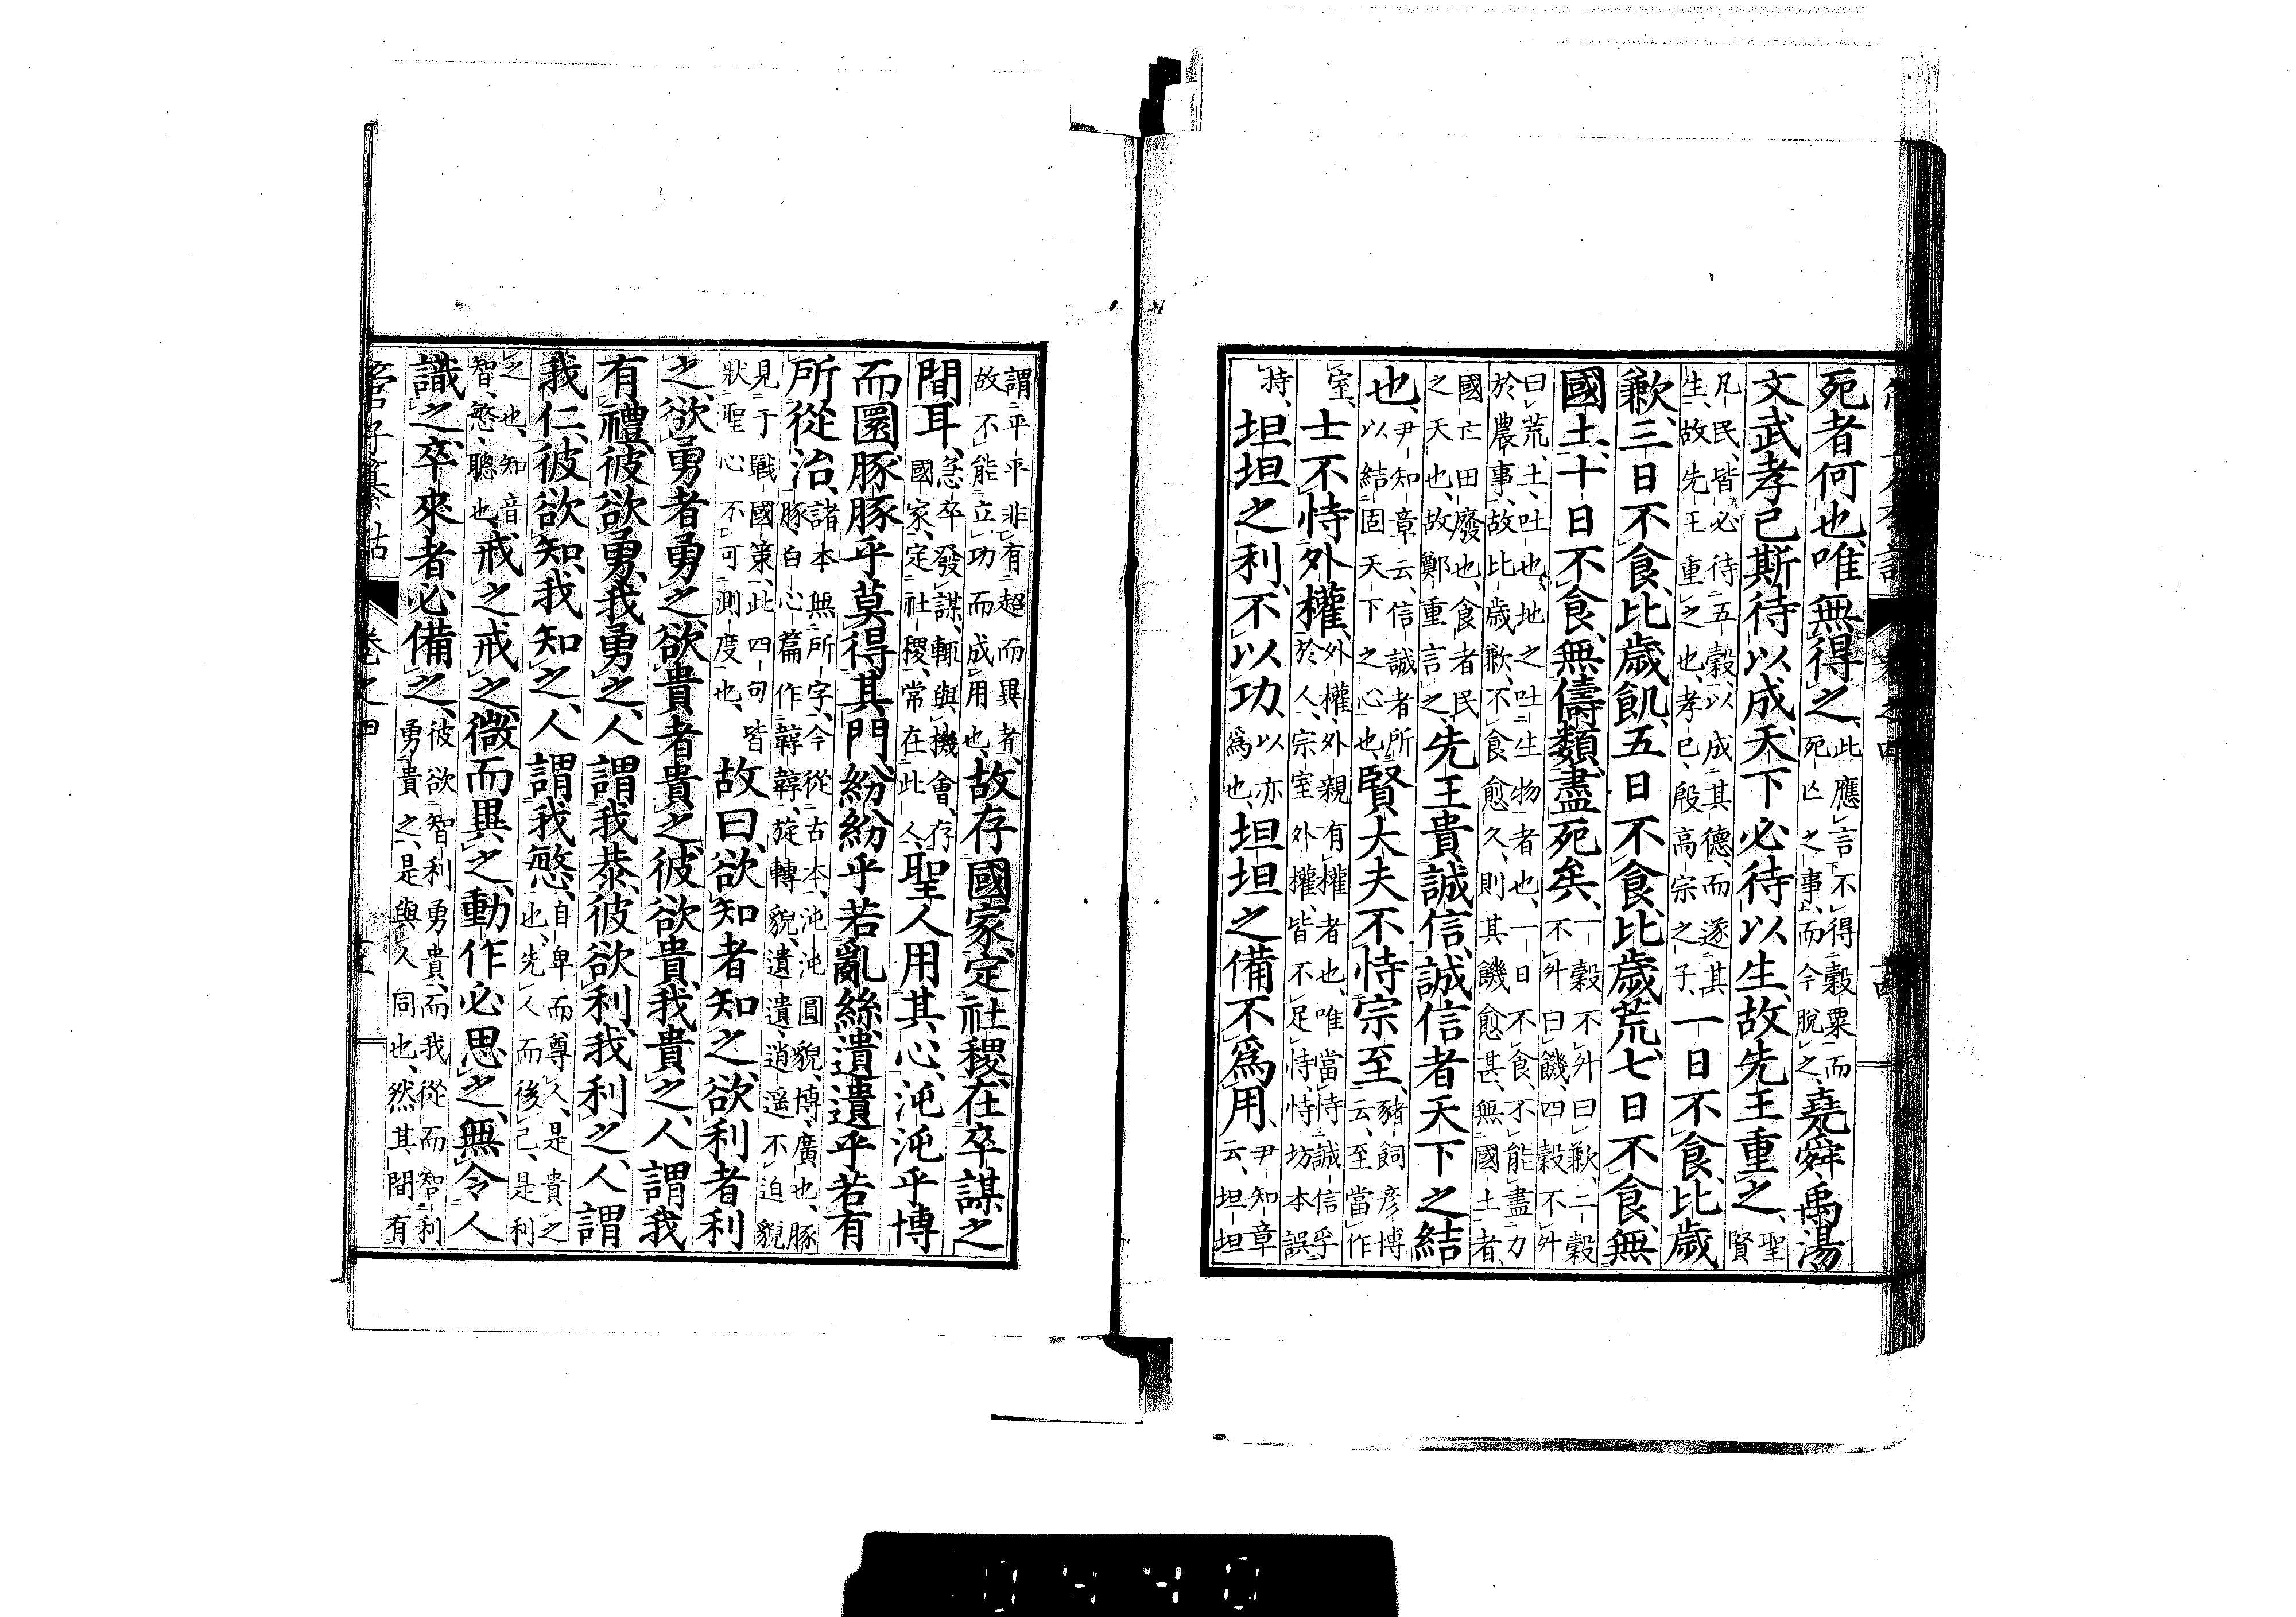 死者何也、唯無得之、此應言不得穀粟而死亡之事、而今脫之、堯舜禹湯
文武孝己斯待以成、天下必待以生、故先王重之、聖賢
凡民、皆必待五穀、以成其德、而遂其生、故先王重之也、孝己、殷高宗之子、一日不食、比歲
歉、三日不食、比歲飢、五日不食、比歲荒、七日不食、無
國土、十日不食、無儔類、盡死矣、一穀不升曰歉、二穀不升曰饑、四穀不升
曰荒、土、吐也、地之吐生物者也、一日不食、不能盡力於農事、故比歲歉、不食愈久、則其饑愈甚、無國土者、
國亡田廢也、食者民之天也、故鄭重言之、先王貴誠信、誠信者天下之結
也、尹知章云、信誠者所以結固天下之心也、賢大夫不恃宗至、豬飼彥博云、至當作
室、士不恃外權、外權、外親有權者也、唯當恃誠信乎於人、宗室外權、皆不足恃、恃坊本誤
持、坦坦之利、不以功、以亦為也、坦坦之備不為用、尹知章云、坦坦
謂平平非有超而異者、故不能立功而成用也、故存國家、定社稷、在卒謀之
間耳、急卒發謀、輒與機會、存國家、定社稷、常在此人、聖人用其心、沌沌乎博
而圜、豚豚乎莫得其門、紛紛乎若亂絲、遺遺乎若有
所從治、諸本無所字、今從古本、沌沌圓貌、博、廣也、豚豚、白心篇作䩔䩔、旋轉貌、遺遺、逍遥不迫貌
見于戰國策、此四句皆狀聖心不可測度也、故曰、欲知者知之、欲利者利
之、欲勇者勇之、欲貴者貴之、彼欲貴、我貴之、人謂我
有禮、彼欲勇、我勇之、人謂我恭、彼欲利、我利之、人謂
我仁、彼欲知、我知之、人謂我慜、自卑而尊人、是貴之也、先人而後己、是利
之也、知音智、慜、聰也、戒之、戒之、微而異之、動作必思之、無令人
識之、卒來者必備之、彼欲智利勇貴、而我從而智利勇貴之、是與人同也、然其間有
管子纂詁 卷之四